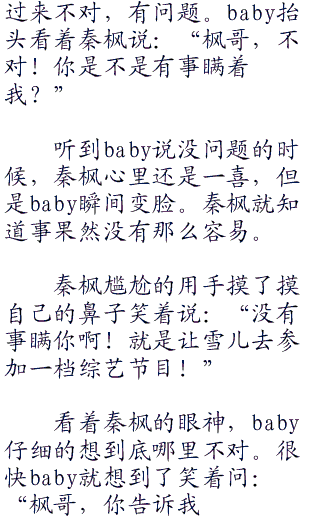 过来不对，有问题。baby抬
头看着秦枫说：“枫哥，不
对！你是不是有事瞒着
我？”
听到baby说没问题的时
候，秦枫心里还是一喜，但
是baby瞬间变脸。秦枫就知
道事果然没有那么容易。
秦枫尴尬的用手摸了摸
自己的鼻子笑着说：“没有
事瞒你啊！就是让雪儿去参
加一档综艺节目！”
看着秦枫的眼神，baby
仔细的想到底哪里不对。很
快baby就想到了笑着问：
“枫哥，你告诉我